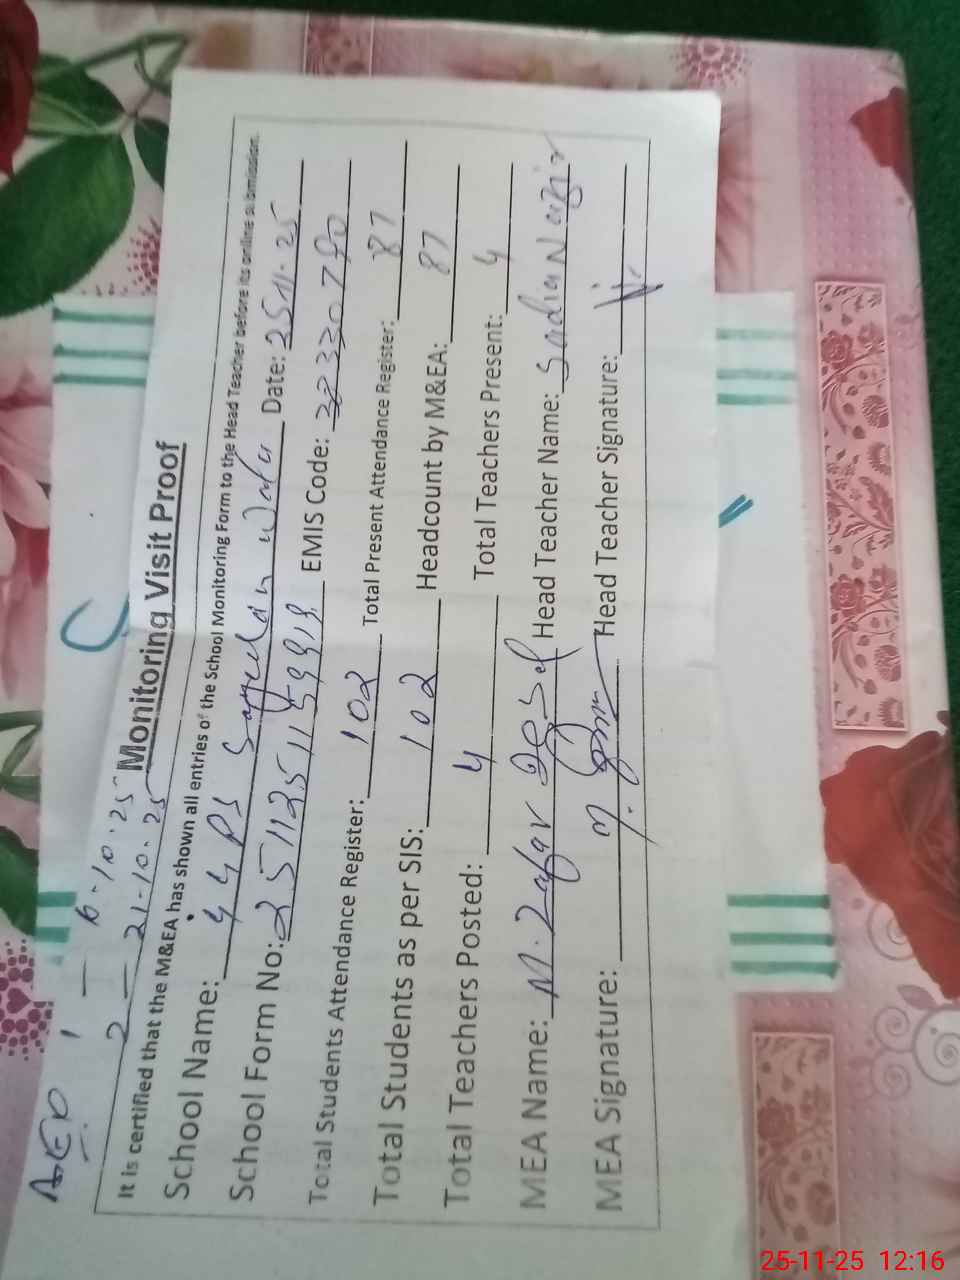 AEO 1 — 6.10.25
2 — 21-10.25
Monitoring Visit Proof
It is certified that the M&EA has shown all entries of the School Monitoring Form to the Head Teacher before its online submission.
School Name: Date: 25-11-25
School Form No: EMIS Code:
Total Students Attendance Register: 102 Total Present Attendance Register: 87
Total Students as per SIS: 102 Headcount by M&EA: 87
Total Teachers Posted: 4 Total Teachers Present: 4
MEA Name: M. Zafar Head Teacher Name: Nazir
MEA Signature: Head Teacher Signature:
25-11-25 12:16